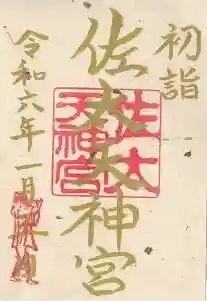 初詣
佐太天神宮
佐太
天神宮
令和六年一月